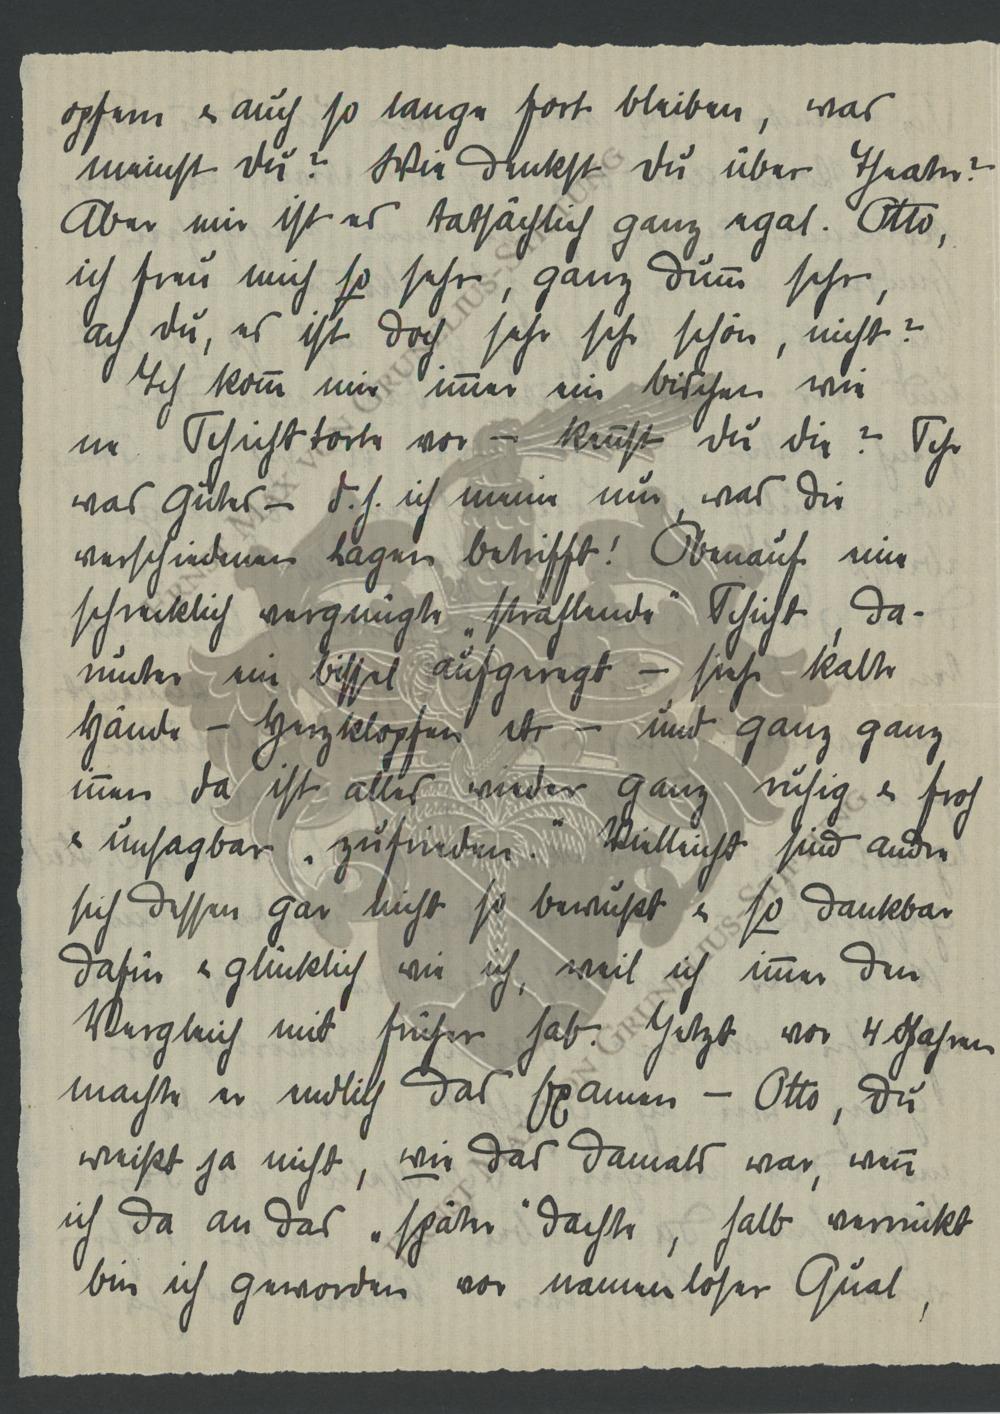 opfern & auch so lange fort bleiben, was
meinst du? Wie denkst du über Theater?
Aber mir ist es tatsächlich ganz egal. Otto,
ich freu mich so sehr, ganz dum̅ sehr,
ach du, es ist doch sehr sehr schön, nicht?
Ich kom̅ mir im̅er ein bischen wie
ne Schichttorte vor – ken̅st du die? Sehr
was Gutes – d. h. ich meine nur, was die
verschiedenen Lagen betrifft! Obenauf eine
schrecklich vergnügte „strahlende" Schicht, da-
runter ein bissel aufgeregt – siehe kalte
Hände – Herzklopfen etc – und ganz ganz
in̅en da ist alles wieder ganz ruhig & froh
& unsagbar „zufrieden." Vielleicht sind andre
sich dessen gar nicht so bewußt & so dankbar
dafür & glücklich wie ich, weil ich im̅er den
Vergleich mit früher hab. Jetzt vor 4 Jahren
machte er endlich das Examen – Otto, du
weißt ja nicht, wie das damals war, wen̅
ich da an das „später" dachte, halb verrückt
bin ich geworden vor namenloser Qual,
VON GRUNELIUS-STIFTUNG
MAX VON GRUNELIUS-STIFTUNG